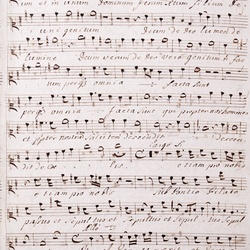 um et in unum Dominum Jesum Xtum Filium
unigenitum Deum de Deo lumen de
lumine Deum verum de Deo vero genitum
per quem omnia facta sunt
per quem omnia facta sunt qui propter nos homines
et propter nostram salutem descendit descen
dit de coelis etiam pro nobis
etiam pro nobis sub Pontio Pilato
passus et sepultus et sepultus et sepultus